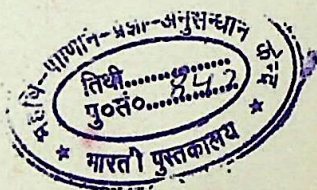 महर्षि-पाणिनि-प्रज्ञा-अनुसन्धान
तिथी..............
पु०सं०..............
★ भारती पुस्तकालय ★